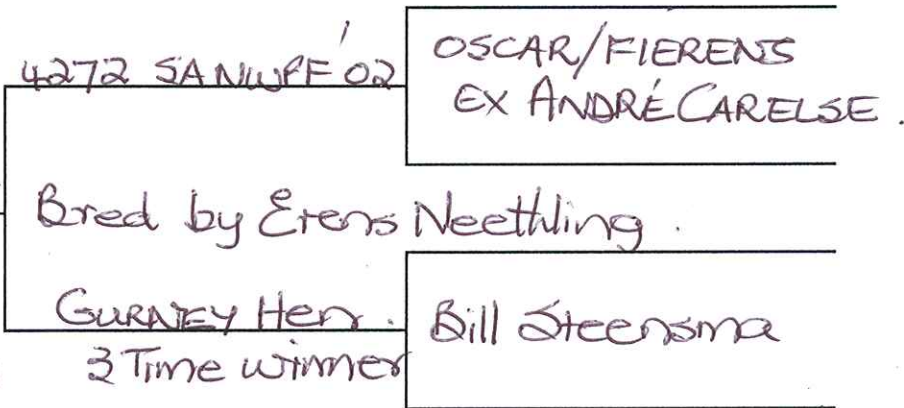 4272 SANWFF '02
OSCAR/FIERENS
EX ANDRÉ CARELSE.
Bred by Erens Neethling.
GURNEY Hen.
3 Time winner
Bill Steensma